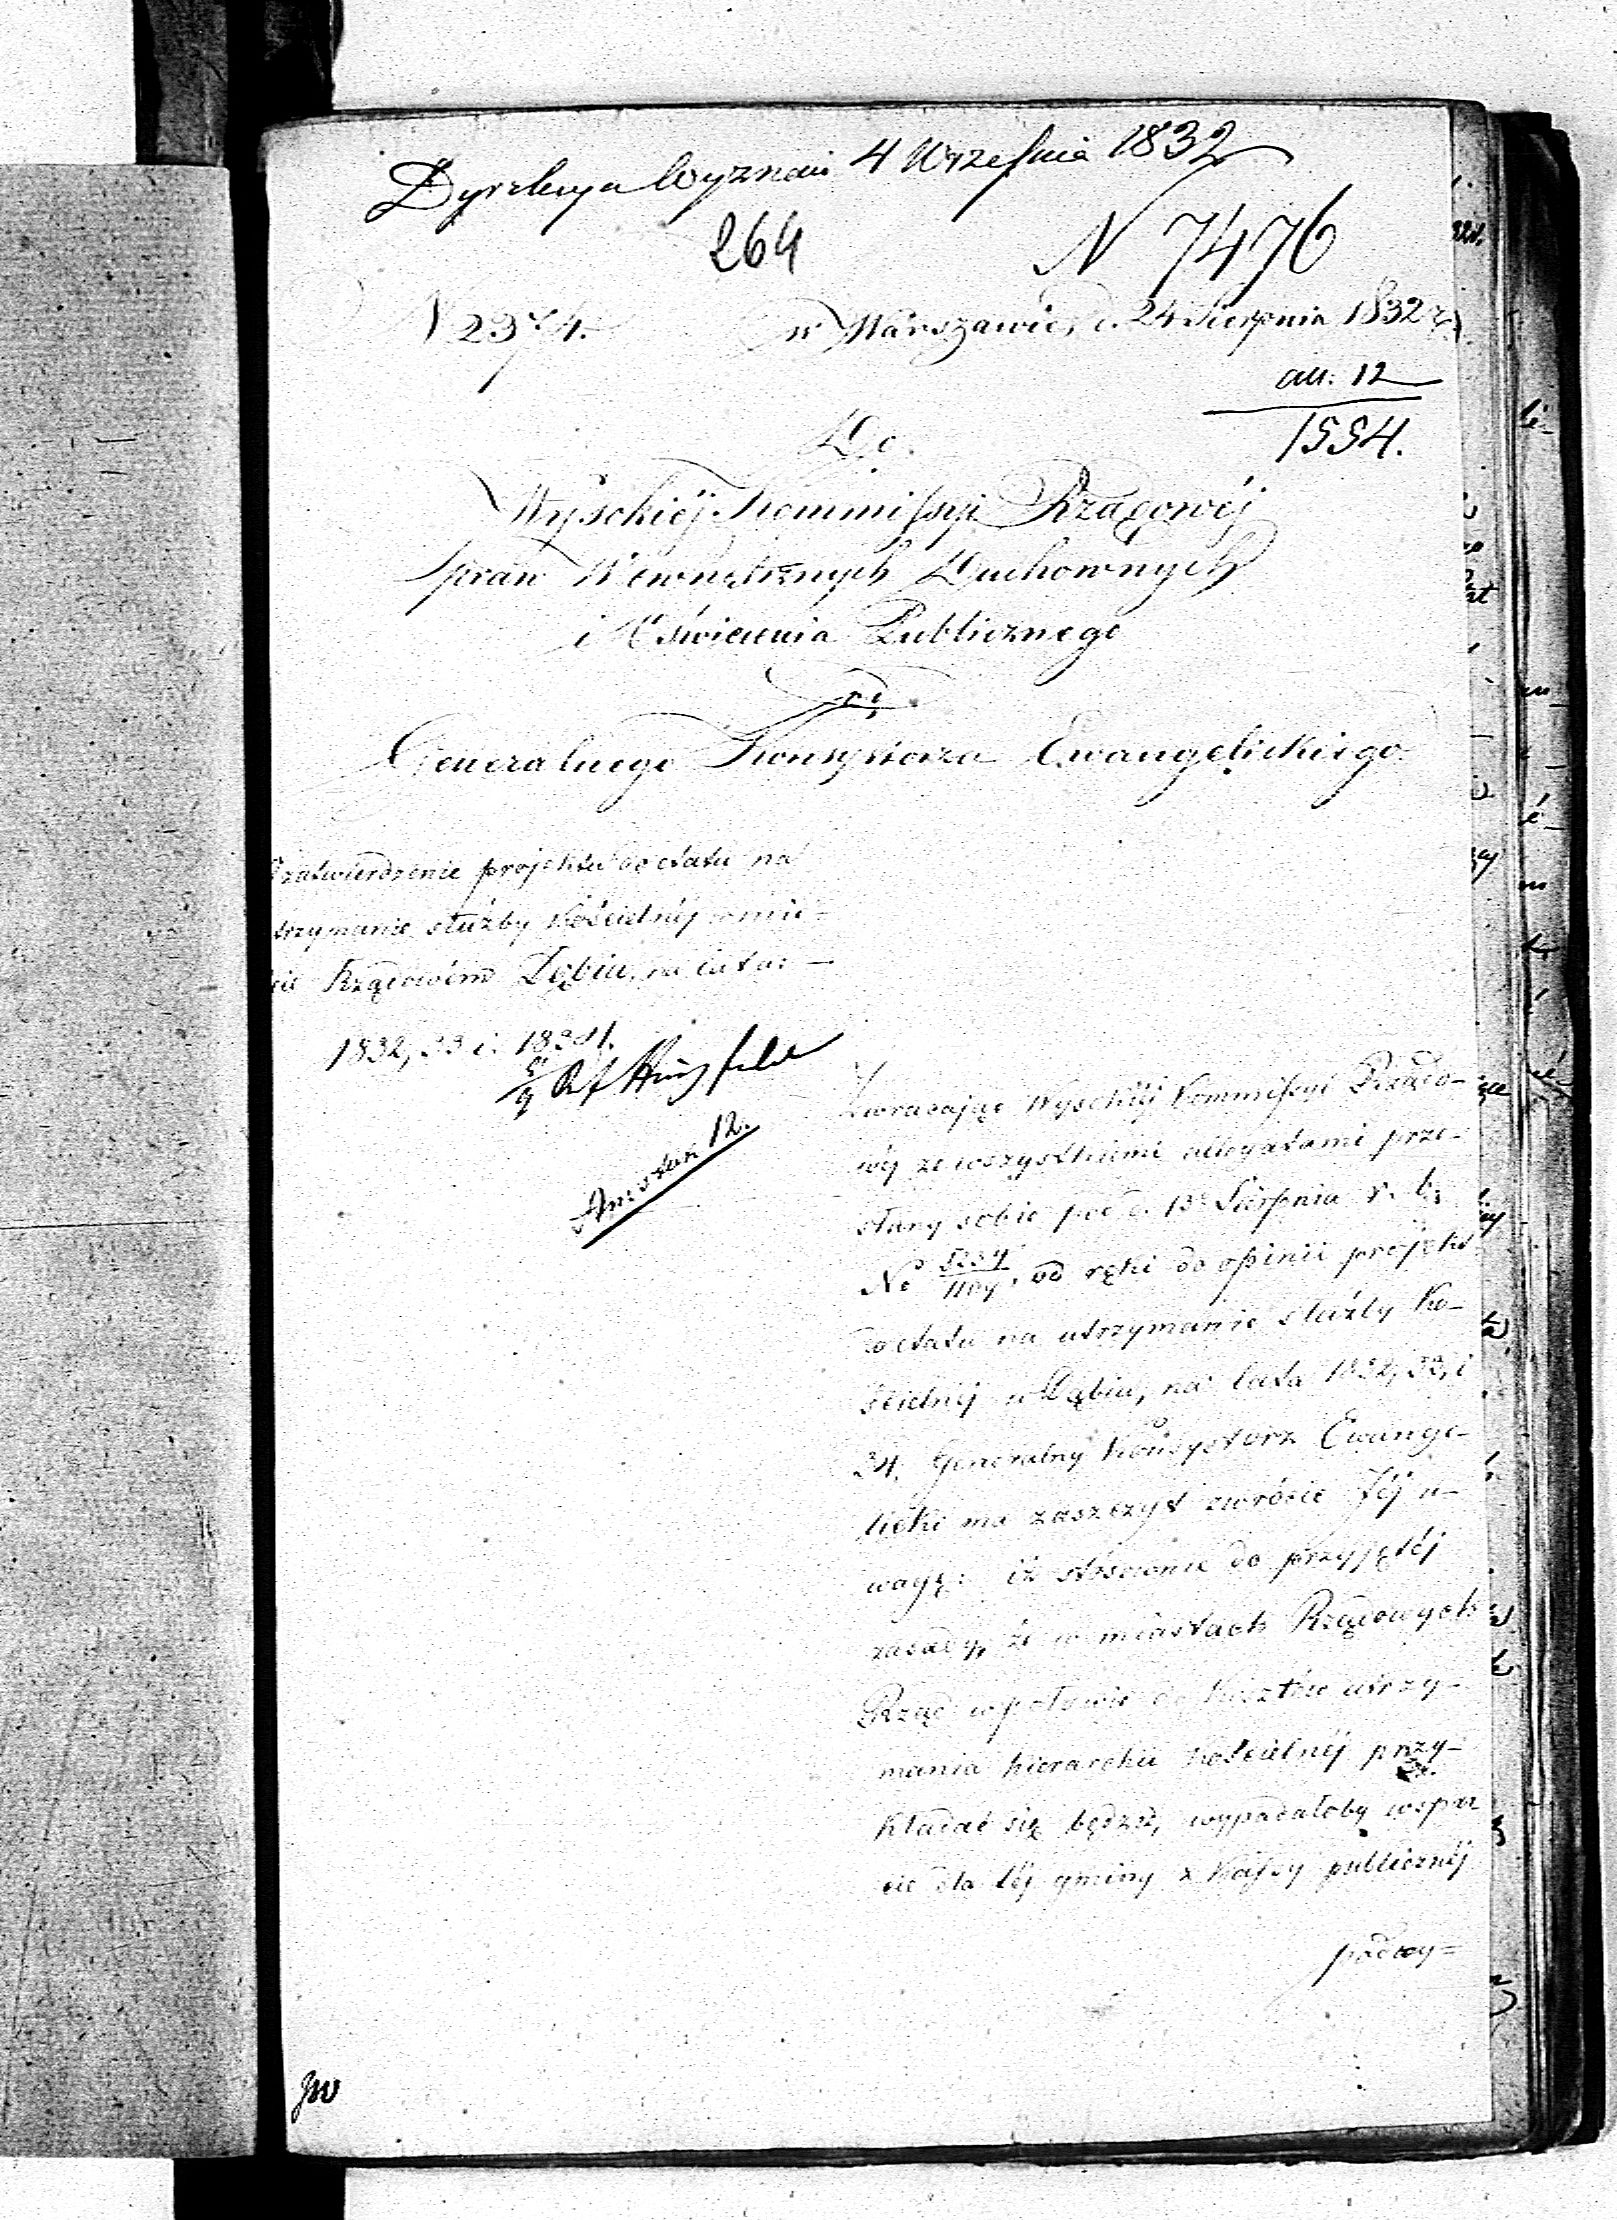 Dyrekcya Wyznań 4 Września 1832
264
N 7476
N 2374.
w Warszawie, d. 24 Sierpnia 1832 r.
an: 12
1554.
Do
Wysokiéj Kommissyi Rządowéj
Spraw Wewnętrznych Duchownych
i Oświecenia Publicznego
od
Generalnego Konsystorza Ewangelickiego
zatwierdzenie projektu do etatu na
trzymanie służby Kościelnéj w mie=
ście Rządowém Dąbiu, na lata: —
1832, 33 i 1834.
Anextów 12.
Zwracając Wysokiéj Kommissyi Rządo-
wéj ze wszystkiemi allegatami prze-
słany sobie pod d. 13 Sierpnia r. b.
No od ręki do opinii projekt
do etatu na utrzymanie służby Ko-
ścielnéj w Dąbiu, na lata 1832, 33, i
34. Generalny Konsystorz Ewange-
licki ma zaszczyt zwrócić Jéj u-
wagę: iż stosownie do przyjętéj
zasady, że w miastach Rządowych
Rząd w połowie do kosztów utrzy-
mania hierarchii kościelnéj przy-
kładać się będzie, wypadałoby wspar
cie dla téj gminy z Kassy publicznéj
podwy=